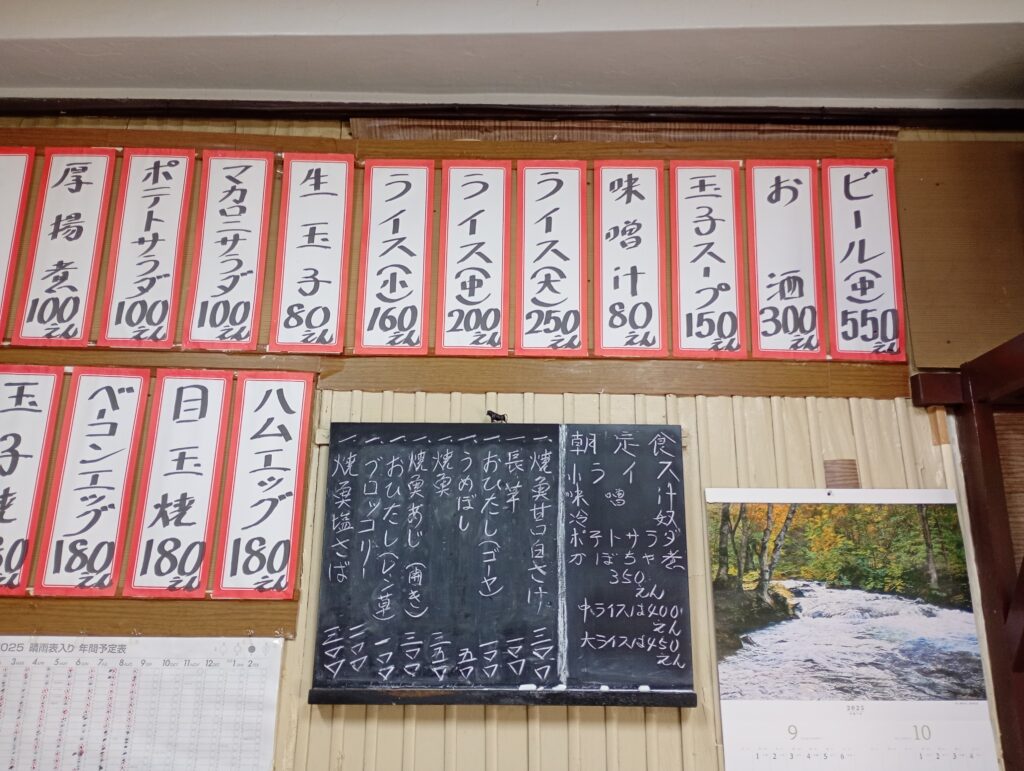 ビール(中)550えん
お酒300えん
玉子スープ150えん
味噌汁80えん
ライス(大)250えん
ライス(中)200えん
ライス(小)160えん
生玉子80えん
マカロニサラダ100えん
ポテトサラダ100えん
厚揚煮100えん
ハムエッグ180えん
目玉焼180えん
ベーコンエッグ180えん
玉子焼
朝定食
小ライス
味噌汁
冷奴
ポテトサラダ
かぼちゃ煮
350えん
中ライスは400えん
大ライスは450えん
一、焼魚甘口白さけ 三〇〇
一、長芋
一、おひたし(ゴーヤ) 一〇〇
一、うめぼし 五〇
一、焼魚 三五〇
一、焼魚あじ(開き) 三〇〇
一、おひたし(レン草) 一〇〇
一、ブロッコリー
一、焼魚塩さば 三〇〇
2025 晴雨表入り 年間予定表
3 MAR 4 APR 5 MAY 6 JUN 7 JUL 8 AUG 9 SEP 10 OCT 11 NOV 12 DEC 1 JAN 2 FEB
2025
9 10
1 2 3 4 5 6
1 2 3 4